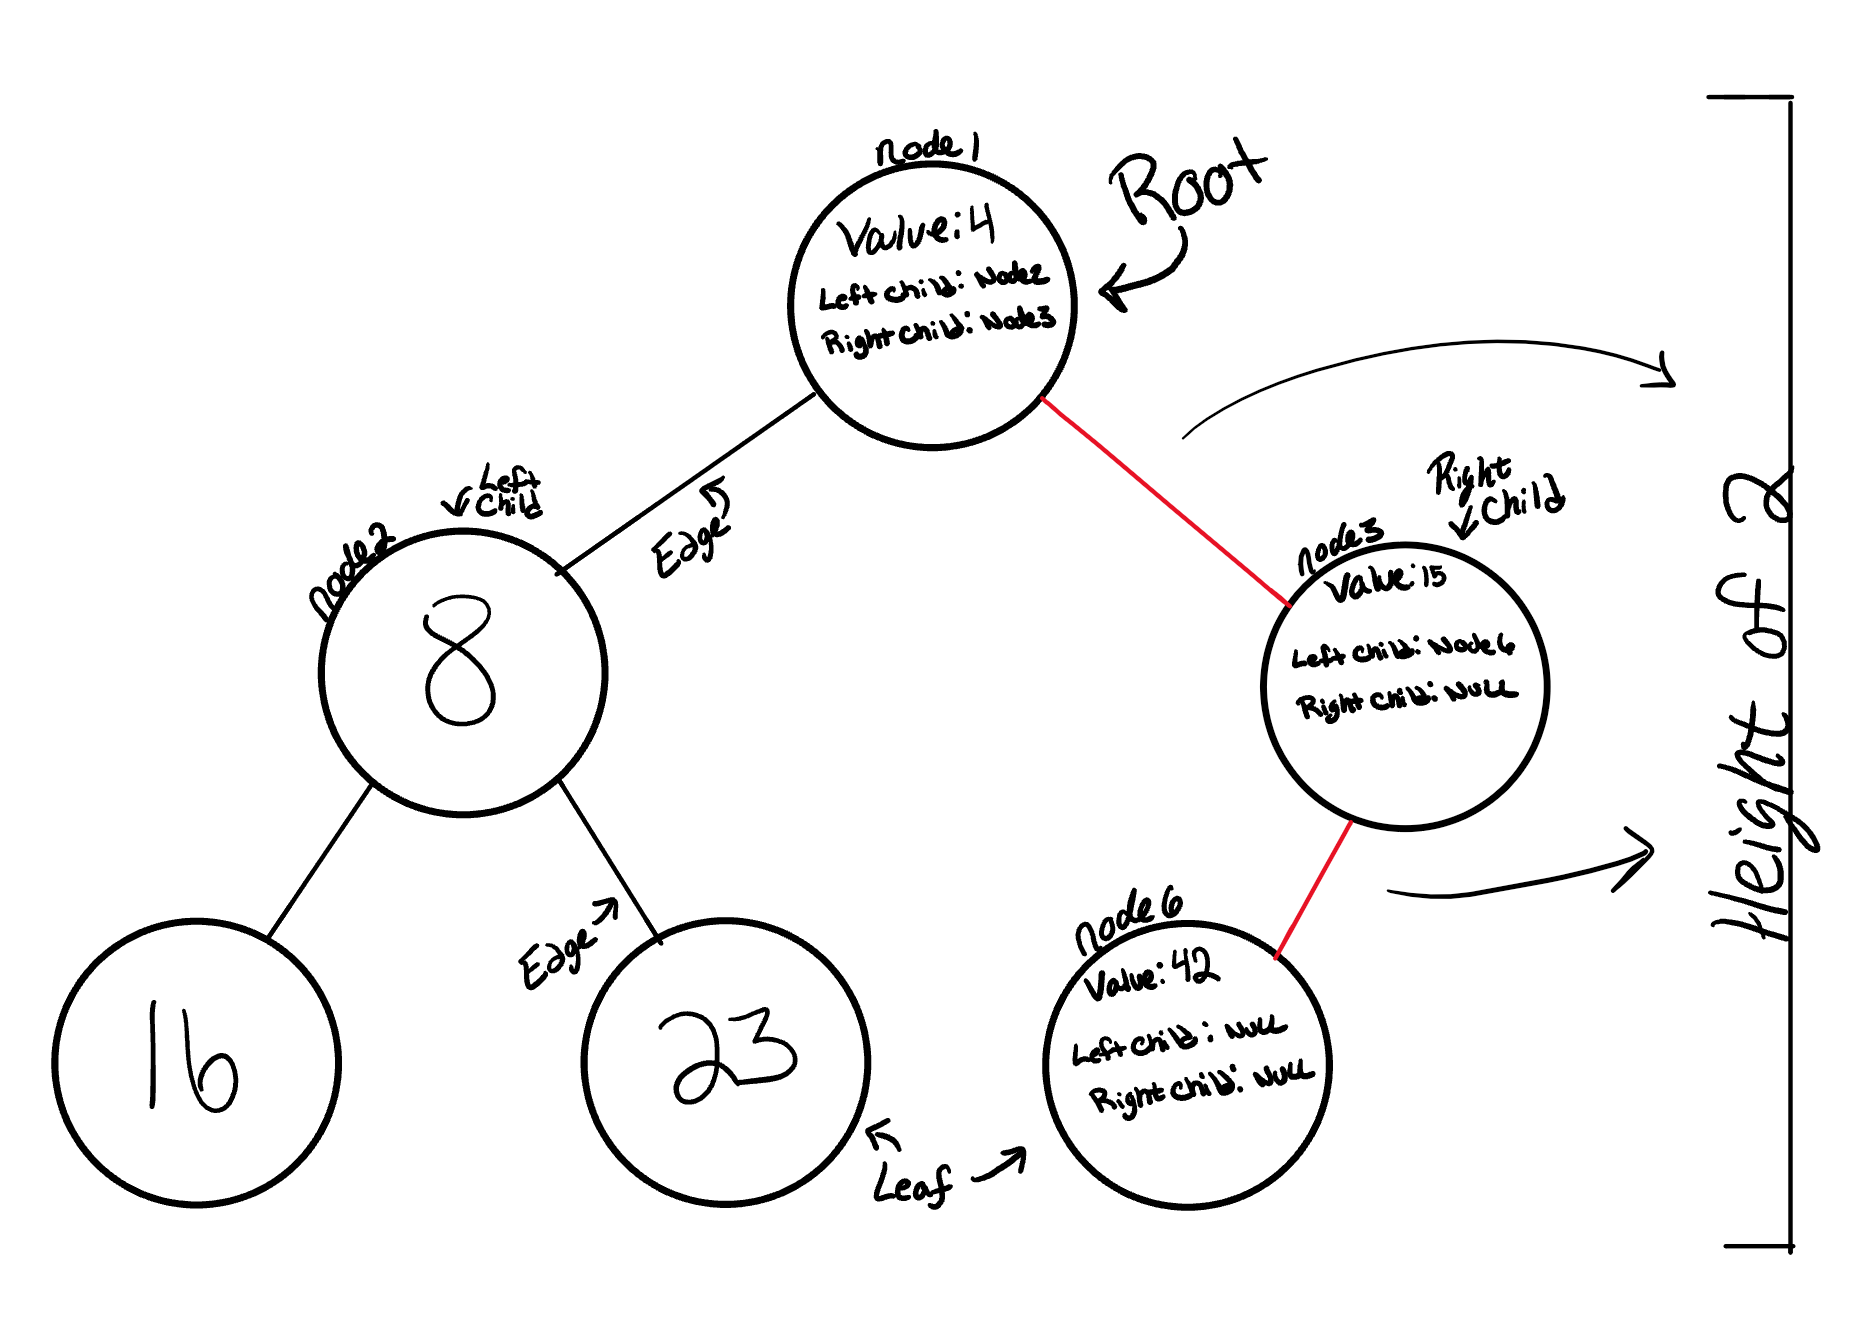 node 1
Root
Value: 4
Left Child: Node2
Right Child: Node3
Left
Child
Edge
Right
Child
node2
8
node3
Value: 15
Left Child: Node 6
Right Child: NULL
Height of 2
Edge
16
23
node 6
Value: 42
Left Child: NULL
Right Child: NULL
Leaf